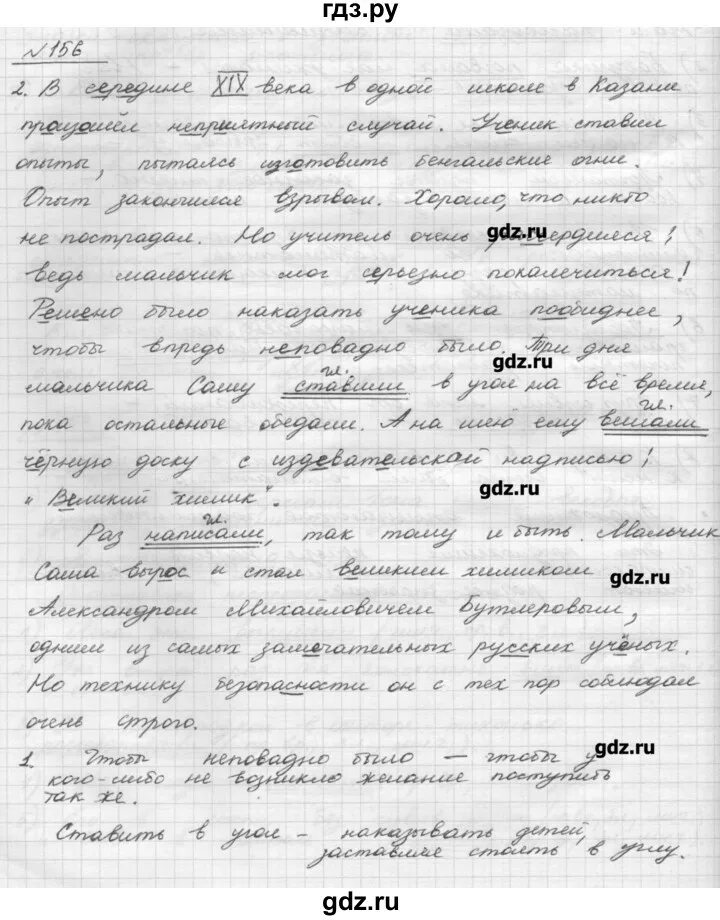 гдз.ру
№156
2. В середине XIX века в одной школе в Казани
произошёл неприятный случай. Ученик ставил
опыты, пытаясь изготовить бенгальские огни.
Опыт закончился взрывом. Хорошо, что никто
не пострадал. Но учитель очень рассердился;
gdz.ru
ведь мальчик мог серьезно покалечиться!
Решено было наказать ученика пообиднее,
чтобы впредь неповадно было. Три дня
gdz.ru
гл.
мальчика Сашу ставили в угол на всё время,
гл.
пока остальные обедали. А на шею ему вешали
чёрную доску с издевательской надписью:
"Великий химик".
gdz.ru
гл.
Раз написали, так тому и быть. Мальчик
Саша вырос и стал великим химиком
gdz.ru
Александром Михайловичем Бутлеровым,
одним из самых замечательных русских учёных.
Но технику безопасности он с тех пор соблюдал
очень строго.
1. Чтобы неповадно было – чтобы у
gdz.ru
кого-либо не возникло желание поступить
так же.
Ставить в угол – наказывать детей,
заставляя стоять в углу.
gdz.ru